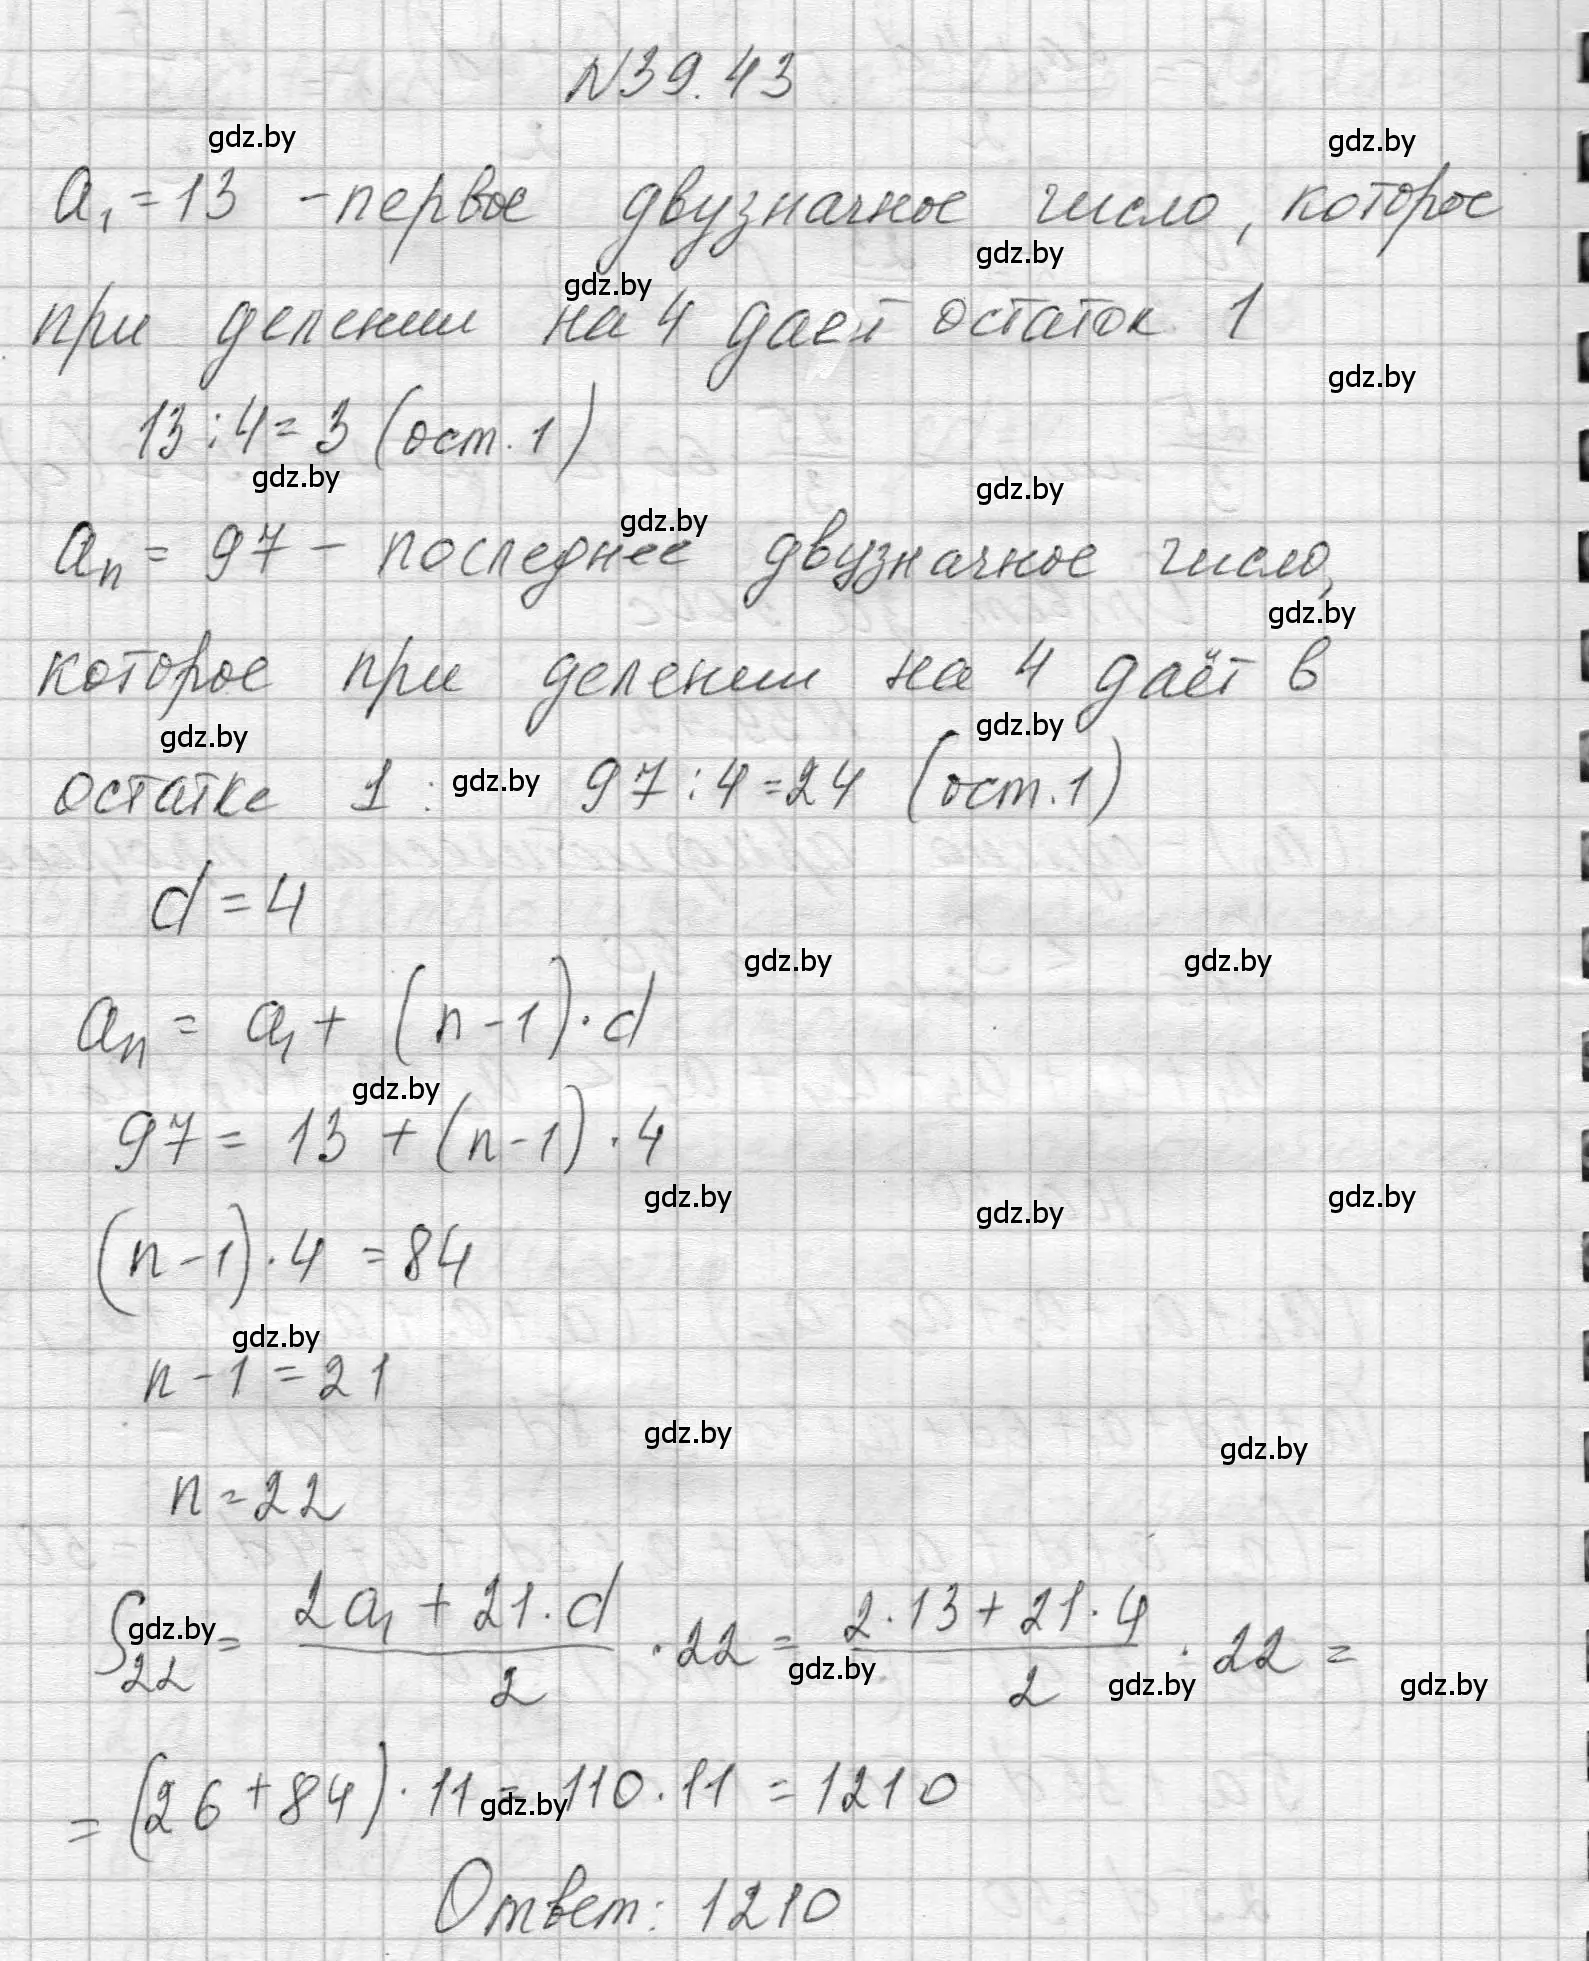 N39.43
gdz.by gdz.by
a₁ = 13 - первое двузначное число, которое
gdz.by gdz.by
при делении на 4 дает остаток 1
gdz.by
13 : 4 = 3 (ост. 1)
gdz.by gdz.by gdz.by
aₙ = 97 - последнее двузначное число,
gdz.by
которое при делении на 4 даёт в
gdz.by gdz.by
остатке 1 : gdz.by 97 : 4 = 24 (ост. 1)
d = 4
gdz.by gdz.by
aₙ = a₁ + (n - 1) · d
gdz.by
97 = 13 + (n - 1) · 4
gdz.by gdz.by gdz.by
(n - 1) · 4 = 84
gdz.by
n - 1 = 21
gdz.by gdz.by
n = 22
S₂₂ gdz.by = (2a₁ + 21 · d)/2 · 22 = (2 · 13 + 21 · 4)/2 · 22 =
gdz.by gdz.by gdz.by
= (26 + 84) · 11 = 110 · 11 = 1210
gdz.by
Ответ: 1210